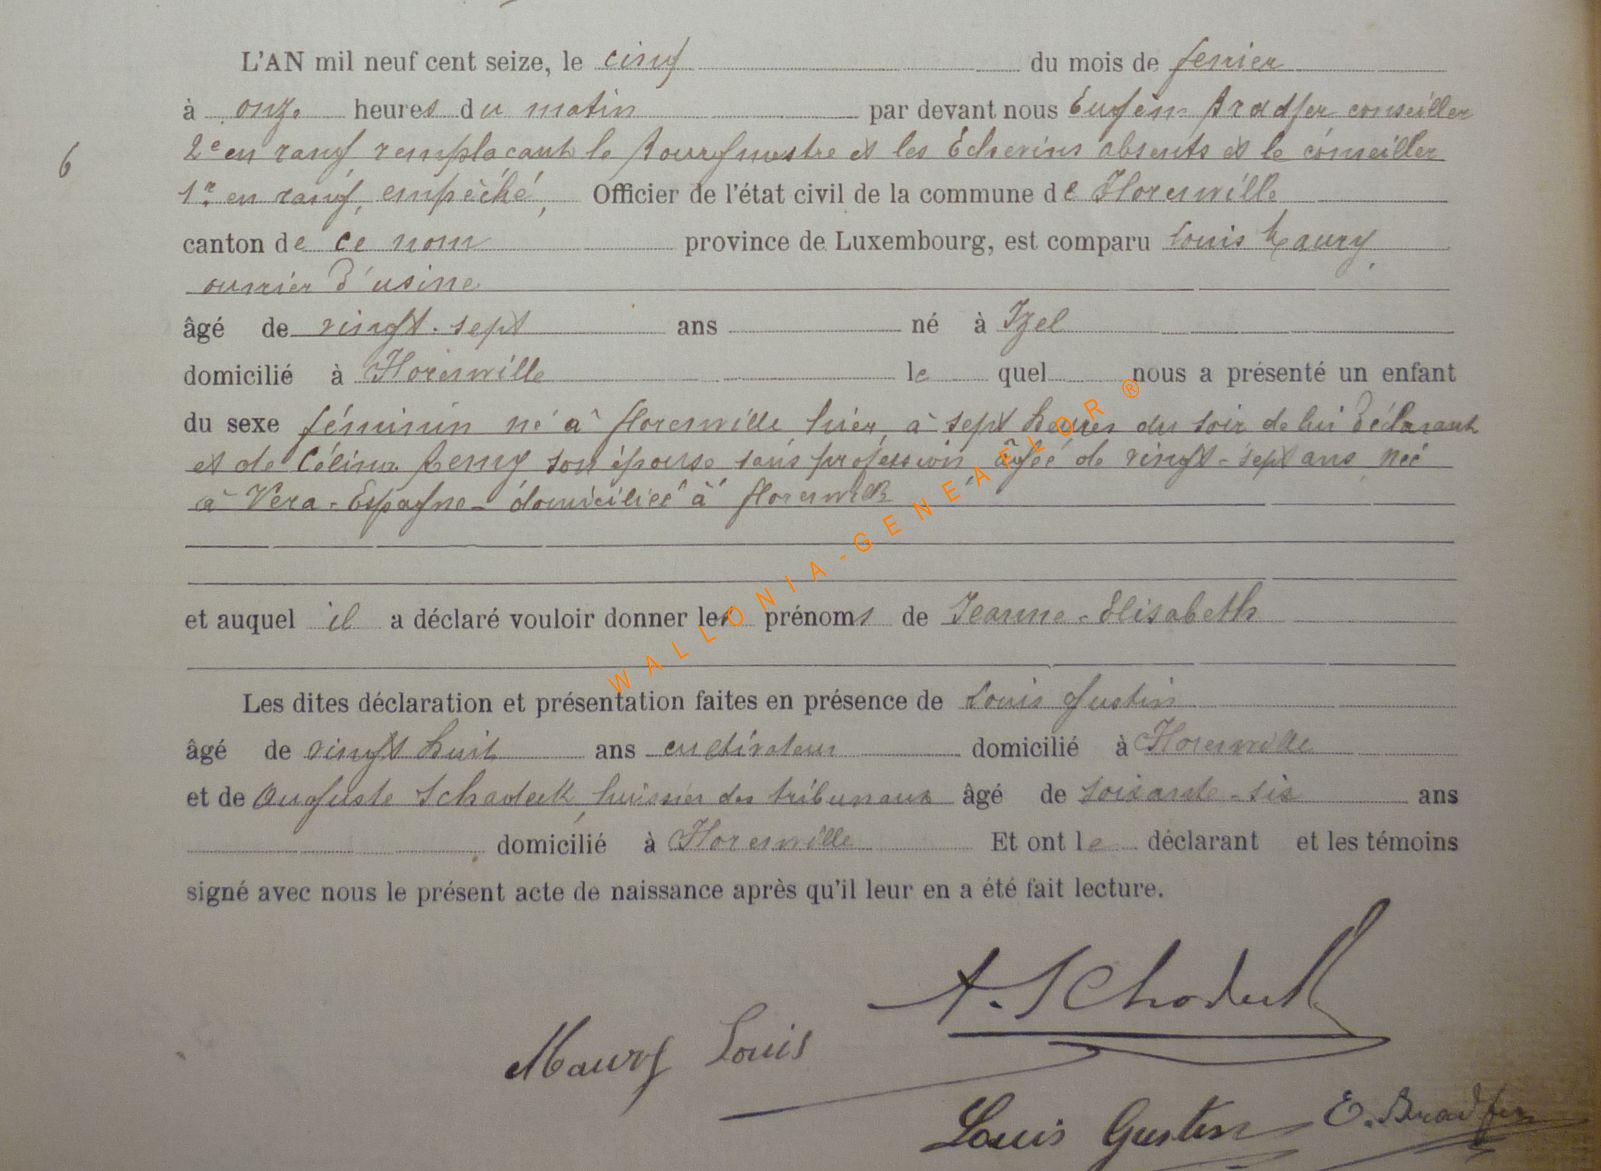 L'AN mil neuf cent seize, le cinq du mois de fevrier
à onze heures du matin par devant nous Eugène Bradfer conseiller
6
2e en rang remplaçant le Bourgmestre et les Echevins absents et le conseiller
1r en rang, empêché, Officier de l'état civil de la commune de Florenville
canton de ce nom province de Luxembourg, est comparu Louis Maury,
ouvrier d'usine
âgé de vingt-sept ans né à Izel
domicilié à Florenville le quel nous a présenté un enfant
du sexe féminin né à Florenville hier, à sept heures du soir de lui déclarant
et de Célina Remy son épouse sans profession âgée de vingt-sept ans, née
à Vera-Espagne-domiciliée à Florenville
et auquel il a déclaré vouloir donner les prénoms de Jeanne-Elisabeth
Les dites déclaration et présentation faites en présence de Louis Gustin
âgé de vingt huit ans cultivateur domicilié à Florenville
et de Auguste huissier des tribunaux âgé de soixante-six ans
domicilié à Florenville Et ont le déclarant et les témoins
signé avec nous le présent acte de naissance après qu'il leur en a été fait lecture.
A.
Maury Louis
Louis Gustin E. Bradfer
WALLONIA-GENEALOR ®